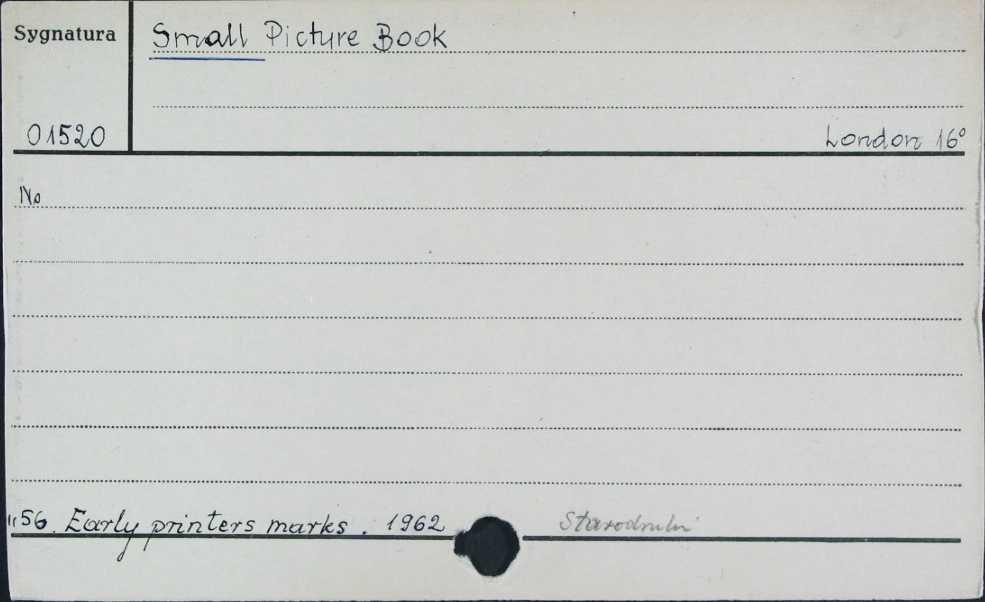 Sygnatura
Small Picture Book
01520
London 16°
No
"56. Early printers marks. 1962
Starodruki